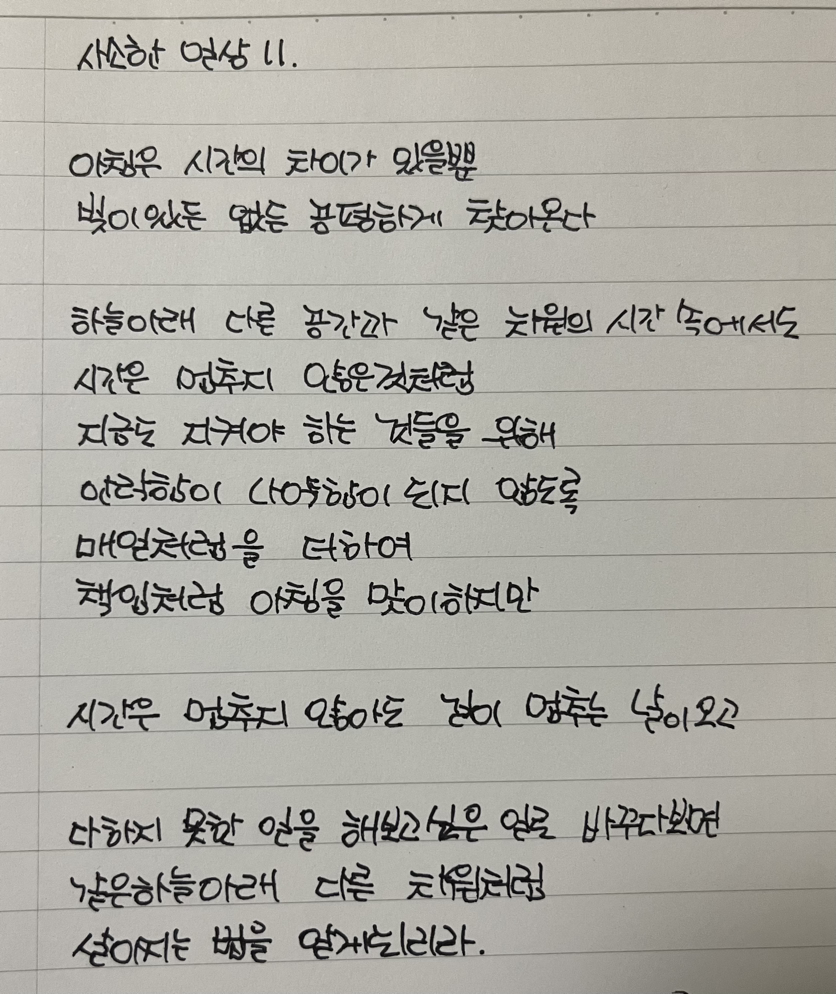 사소한 일상 11.
아침은 시간의 차이가 있을뿐
빛이있든 없든 공평하게 찾아온다
하늘아래 다른 공간과 같은 차원의 시간 속에서도
시간은 멈추지 않은것처럼
지금도 지켜야 하는 것들을 위해
안락함이 나약함이 되지 않도록
매일처럼을 더하여
책임처럼 아침을 맞이하지만
시간은 멈추지 않아도 길이 멈추는 날이오고
다하지 못한 일을 해보고싶은 일로 바꾸다보면
같은하늘아래 다른 차원처럼
살아지는 법을 알게되리라.